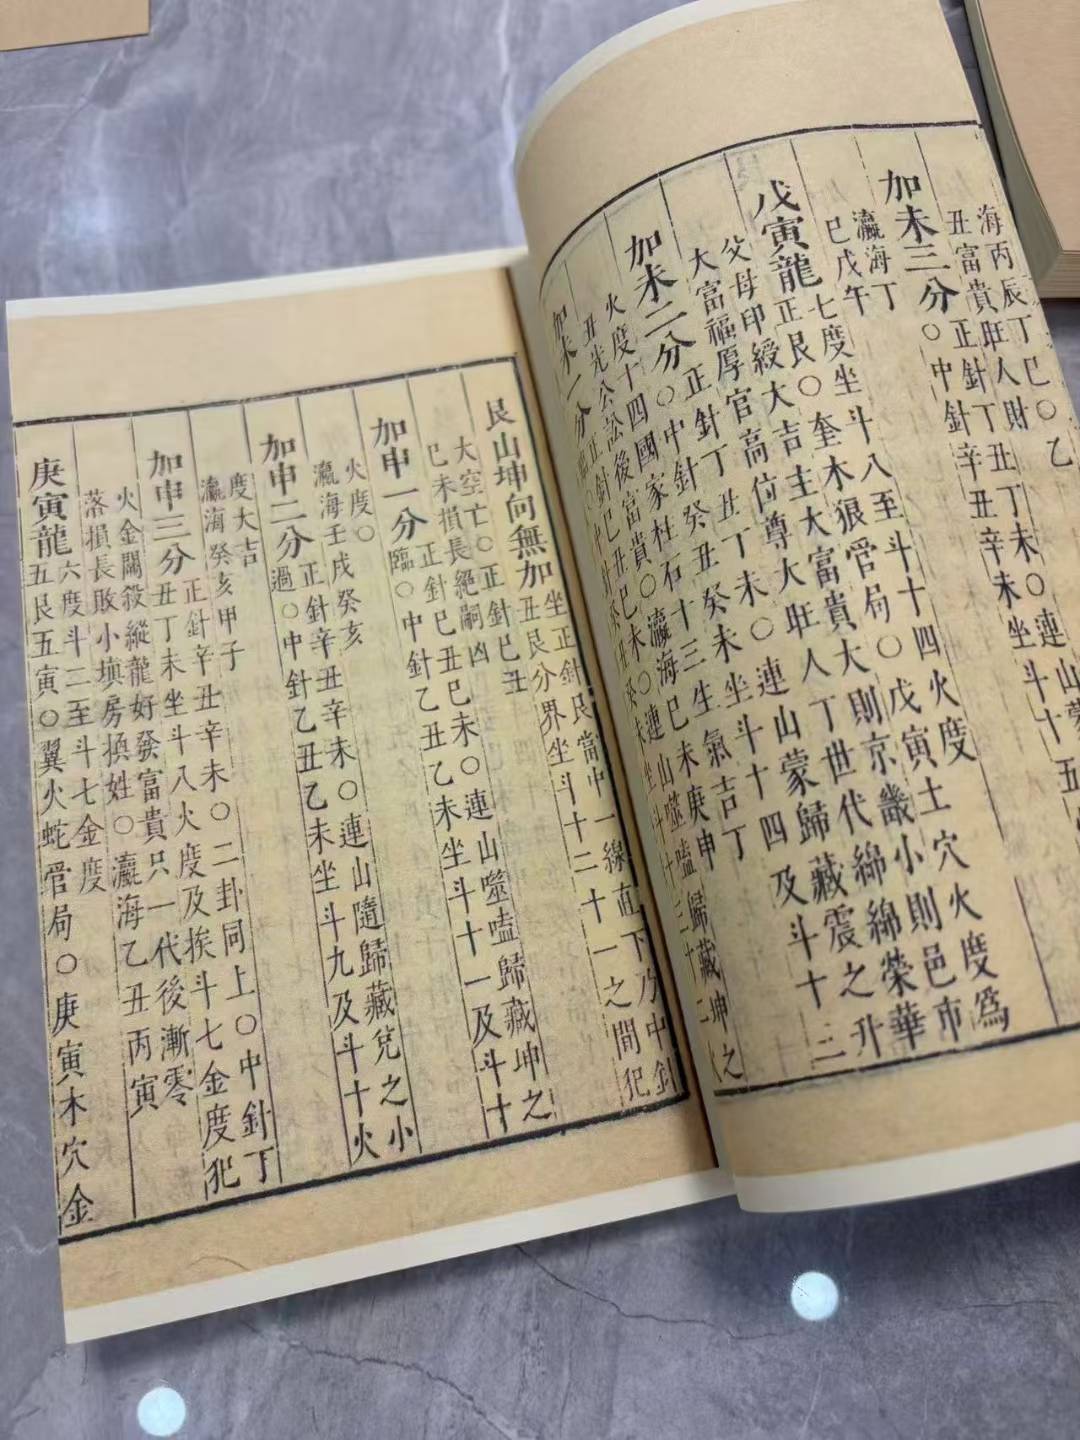 海丙辰丁巳○乙
丑富貴旺人財
正針丁丑丁未○連山蒙
中針辛丑辛未坐斗十五
加未三分○
瀛海丁
巳戊午
七度坐斗八至斗十四火度
戊寅龍正艮○奎木狼管局○戊寅土穴火度為
父母印綬大吉主大富貴大則京畿小則邑市
大富福厚官高位尊大旺人丁世代綿綿榮華
正針丁丑丁未○連山蒙歸藏震之升
加未二分○中針癸丑癸未坐斗十四及斗十三
火度十四國家柱石十三生氣吉丁
丑先公訟後富貴○瀛海己未庚申
加未一分正針己丑己未○連山噬嗑歸藏坤之
艮山坤向無加坐正針艮當中一線直下乃中針
丑艮分界坐斗十二十一之間犯
大空亡○正針己丑
己未損長絕嗣凶
正針己丑己未○連山噬嗑歸藏坤之
加申一分臨○中針乙丑乙未坐斗十一及斗十
火度○
瀛海壬戌癸亥
正針辛丑辛未○連山隨歸藏兌之小
加申二分過○中針乙丑乙未坐斗九及斗十火
度大吉
瀛海癸亥甲子
正針辛丑辛未○二卦同上○中針丁
加申三分丑丁未坐斗八火度及挨斗七金度犯
火金鬬殺縱龍好發富貴只一代後漸零
落損長敗小填房換姓○瀛海乙丑丙寅
六度斗二至斗七金度
庚寅龍五艮五寅○翼火蛇管局○庚寅木穴金